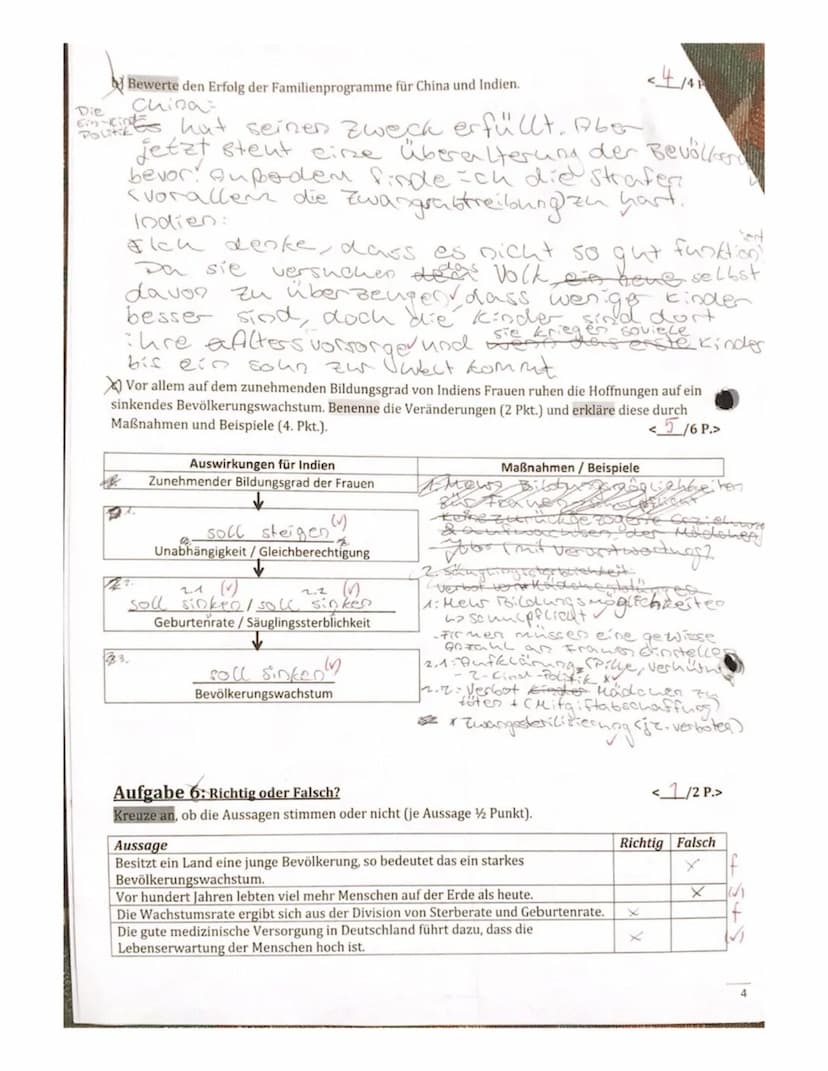 b) Bewerte den Erfolg der Familienprogramme für China und Indien. <4/4 P
China:
Die Ein-Kind Politik hat seinen Zweck erfüllt. Aber
jetzt steht eine Überalterung der Bevölkeru
bevor! Außerdem finde ich die Strafen
(vorallem die Zwangsabtreibung) zu hart.
Indien:
Ich denke, dass es nicht so gut funktioniert
Da sie versuchen das Volk ein neue selbst
davon zu überzeugen, dass weniger Kinder
besser sind, doch die Kinder sind dort
ihre Altersvorsorge und sie kriegen soviele Kinder
bis ein Sohn zur Welt kommt
c) Vor allem auf dem zunehmenden Bildungsgrad von Indiens Frauen ruhen die Hoffnungen auf ein
sinkendes Bevölkerungswachstum. Benenne die Veränderungen (2 Pkt.) und erkläre diese durch
Maßnahmen und Beispiele (4. Pkt.). <5/6 P.>
Auswirkungen für Indien Maßnahmen / Beispiele
Zunehmender Bildungsgrad der Frauen
1. soll steigen (√)
Unabhängigkeit / Gleichberechtigung
2. 2.1 (√) 2.2 (√)
soll sinken / soll sinken
Geburtenrate / Säuglingssterblichkeit
3. soll sinken (√)
Bevölkerungswachstum
1. Mehr Bildungsmöglichkeiten
für Frauen
2. Säuglingssterblichkeit
1: Mehr Bildungsmöglichkeiten
↳ Schulpflicht √
- Firmen müssen eine gewisse
Anzahl an Frauen einstellen
2.1: Aufklärung, (Pille, Verhütu
- 2-Kind-Politik *√
2.2: Verbot Mädchen zu
töten + (Mitgiftabschaffung)
* Zwangssterilisierung (jz. verboten)
Aufgabe 6: Richtig oder Falsch? <1/2 P.>
Kreuze an, ob die Aussagen stimmen oder nicht (je Aussage ½ Punkt).
Aussage Richtig Falsch
Besitzt ein Land eine junge Bevölkerung, so bedeutet das ein starkes × f
Bevölkerungswachstum.
Vor hundert Jahren lebten viel mehr Menschen auf der Erde als heute. × (√)
Die Wachstumsrate ergibt sich aus der Division von Sterberate und Geburtenrate. × f
Die gute medizinische Versorgung in Deutschland führt dazu, dass die × (√)
Lebenserwartung der Menschen hoch ist.
4